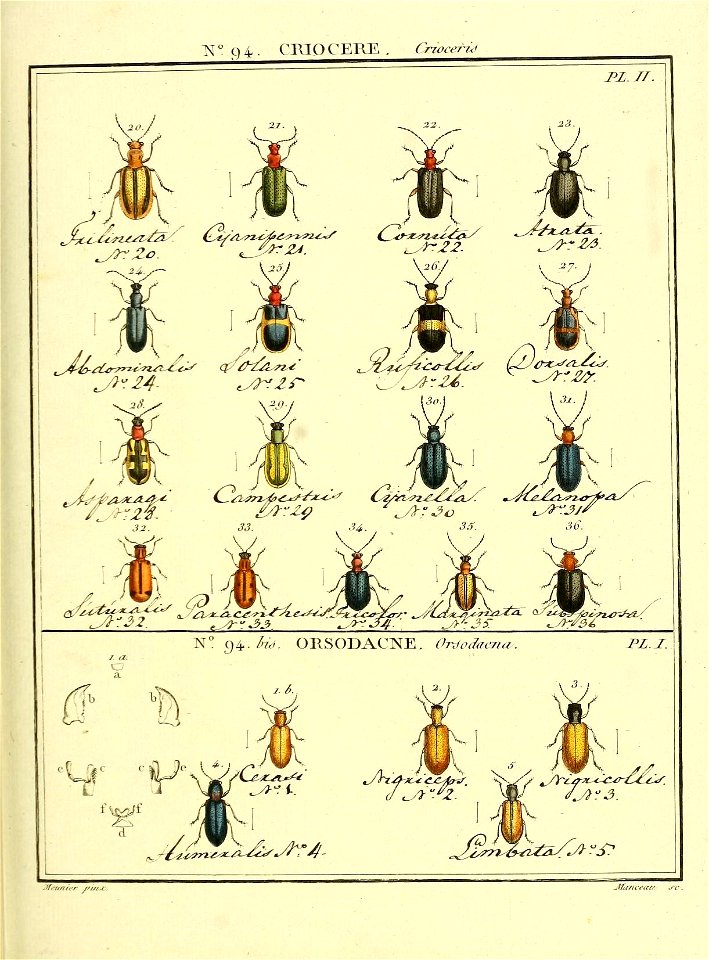 N.º 94. CRIOCERE. Crioceris
PL. II.
20. 21. 22. 23.
Trilineata. Cyanipennis Cornuta Atrata.
N.º 20. N.º 21. N.º 22. N.º 23.
24. 25. 26. 27.
Abdominalis Solani Ruficollis Dorsalis.
N.º 24. N.º 25 N.º 26. N.º 27.
28. 29. 30. 31.
Asparagi Campestris Cyanella. Melanopa
N.º 28. N.º 29 N.º 30 N.º 31
32. 33. 34. 35. 36.
Suturalis Paracenthesis. Tricolor. Marginata Subspinosa.
N.º 32. N.º 33 N.º 34. N.º 35. N.º 36
N.º 94. bis. ORSODACNE. Orsodacna. PL. I.
1. a.
a
b b
1. b. 2. 3.
c e e c
4. 5
f f
d
Cerasi Nigriceps. Nigricollis.
N.º 1. N.º 2. N.º 3.
Humeralis N.º 4. Limbata. N.º 5.
Meunier pinx. Manceau sc.